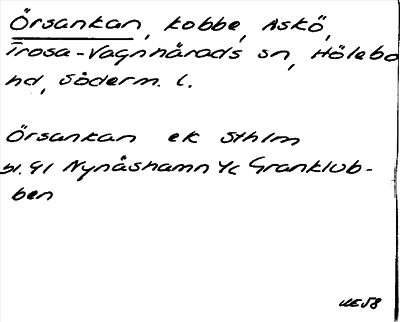 Örsankan, kobbe, Askö,
Trosa-Vagnhärads sn, Hölebo
hd, Söderm. l.
Örsankan ek Sthlm
bl. 91 Nynäshamn ⅟c Granklub-
ben